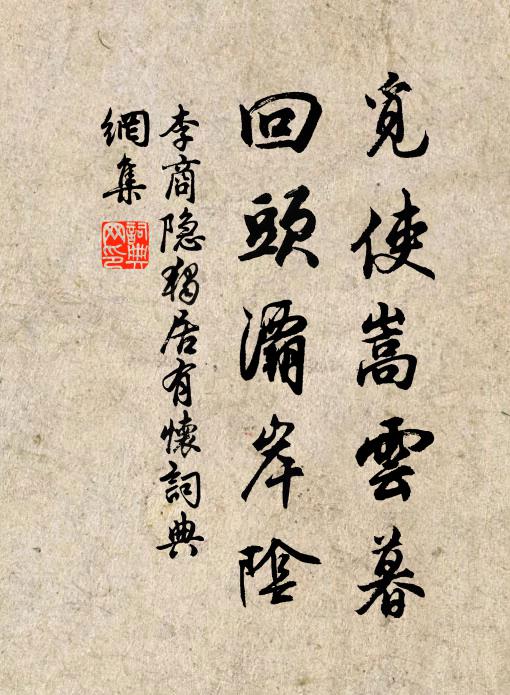 覓使嵩雲暮
回頭灞岸陰
李商隐獨居有懷詞典
網集
詞典
网印